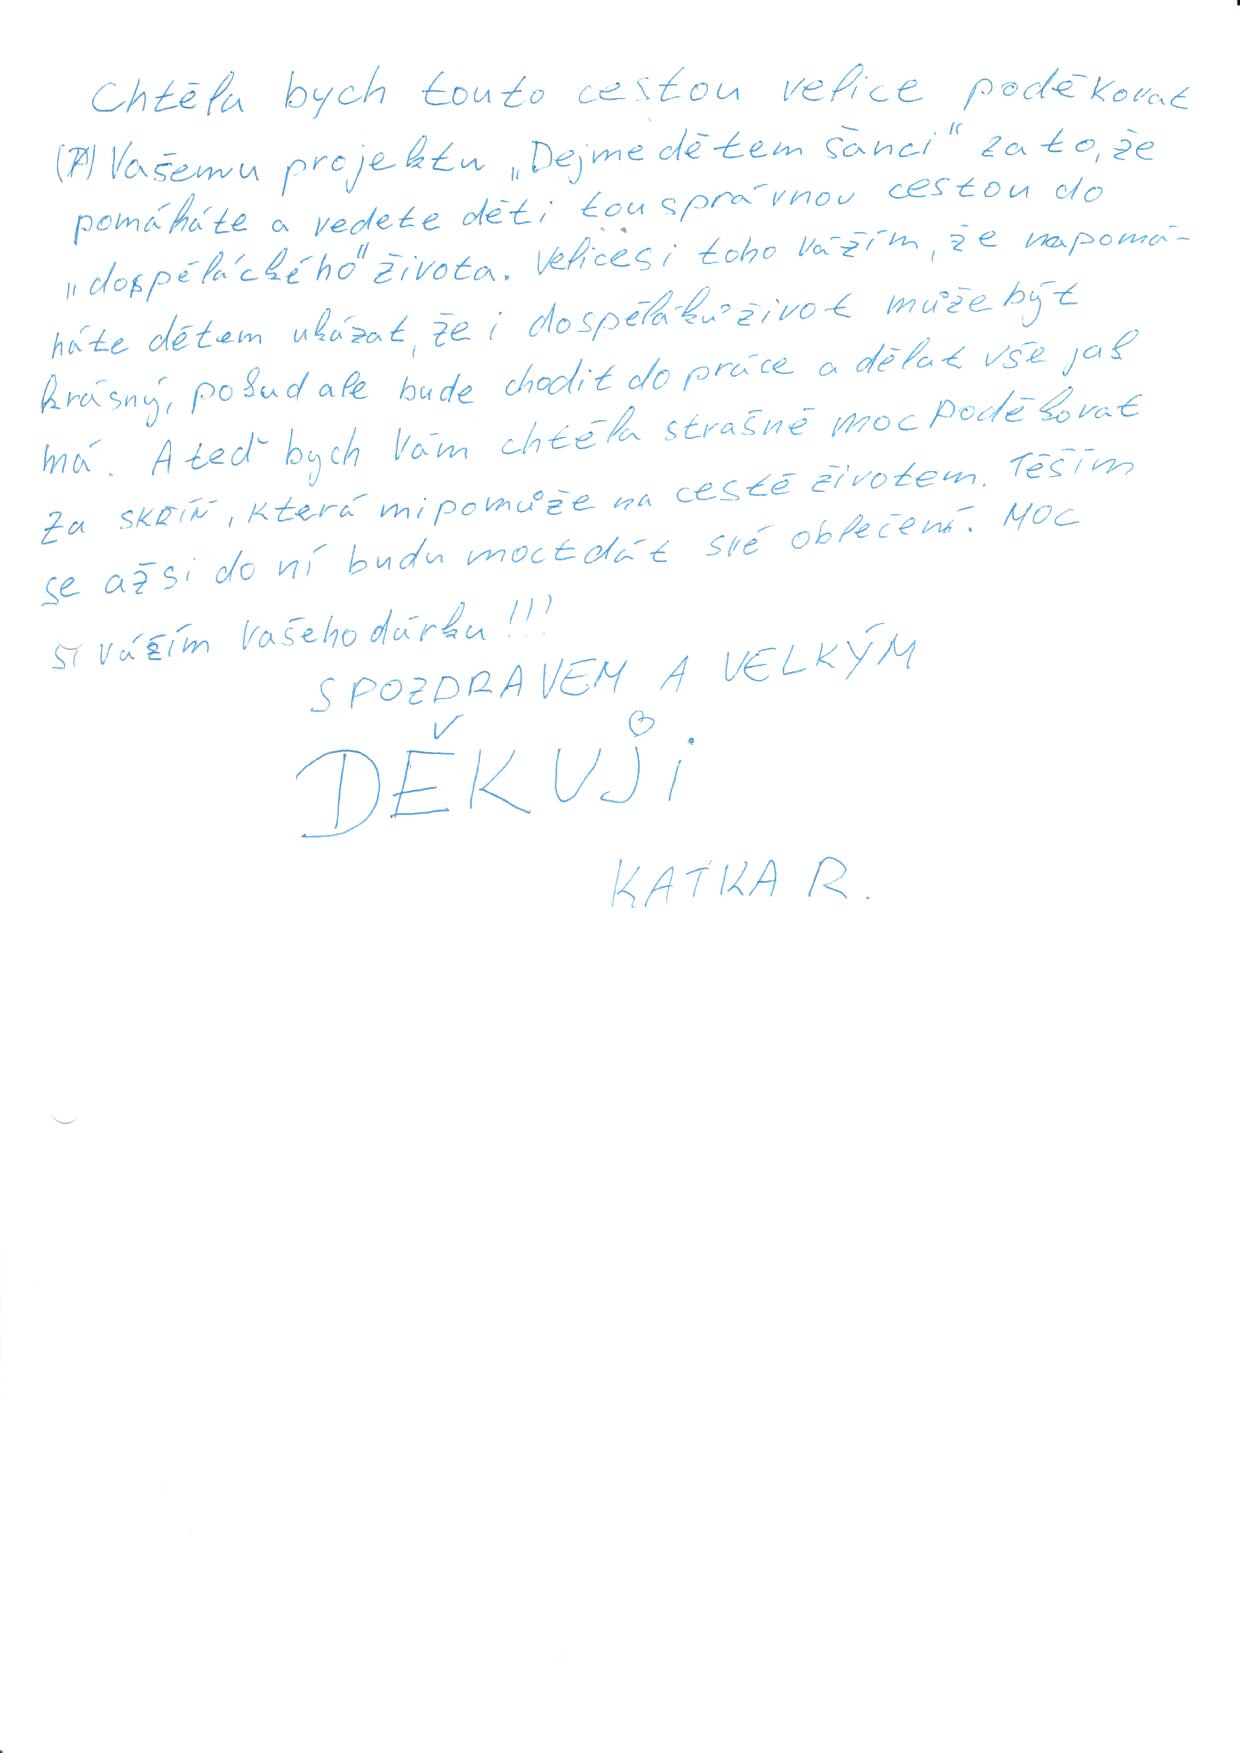 Chtěla bych touto cestou velice poděkovat
Vašemu projektu „Dejme dětem šanci" za to, že
pomáháte a vedete děti tou správnou cestou do
„dospěláckého" života. Velice si toho vážím, že napomá-
háte dětem ukázat, že i dospěláků život může být
krásný, pokud ale bude chodit do práce a dělat vše jak
má. A teď bych Vám chtěla strašně moc poděkovat
za SKŘÍŇ, která mi pomůže na cestě životem. Těším
se až si do ní budu moct dát své oblečení. MOC
si vážím Vašeho dárku!!!
S POZDRAVEM A VELKÝM
DĚKUJi
KATKA R.